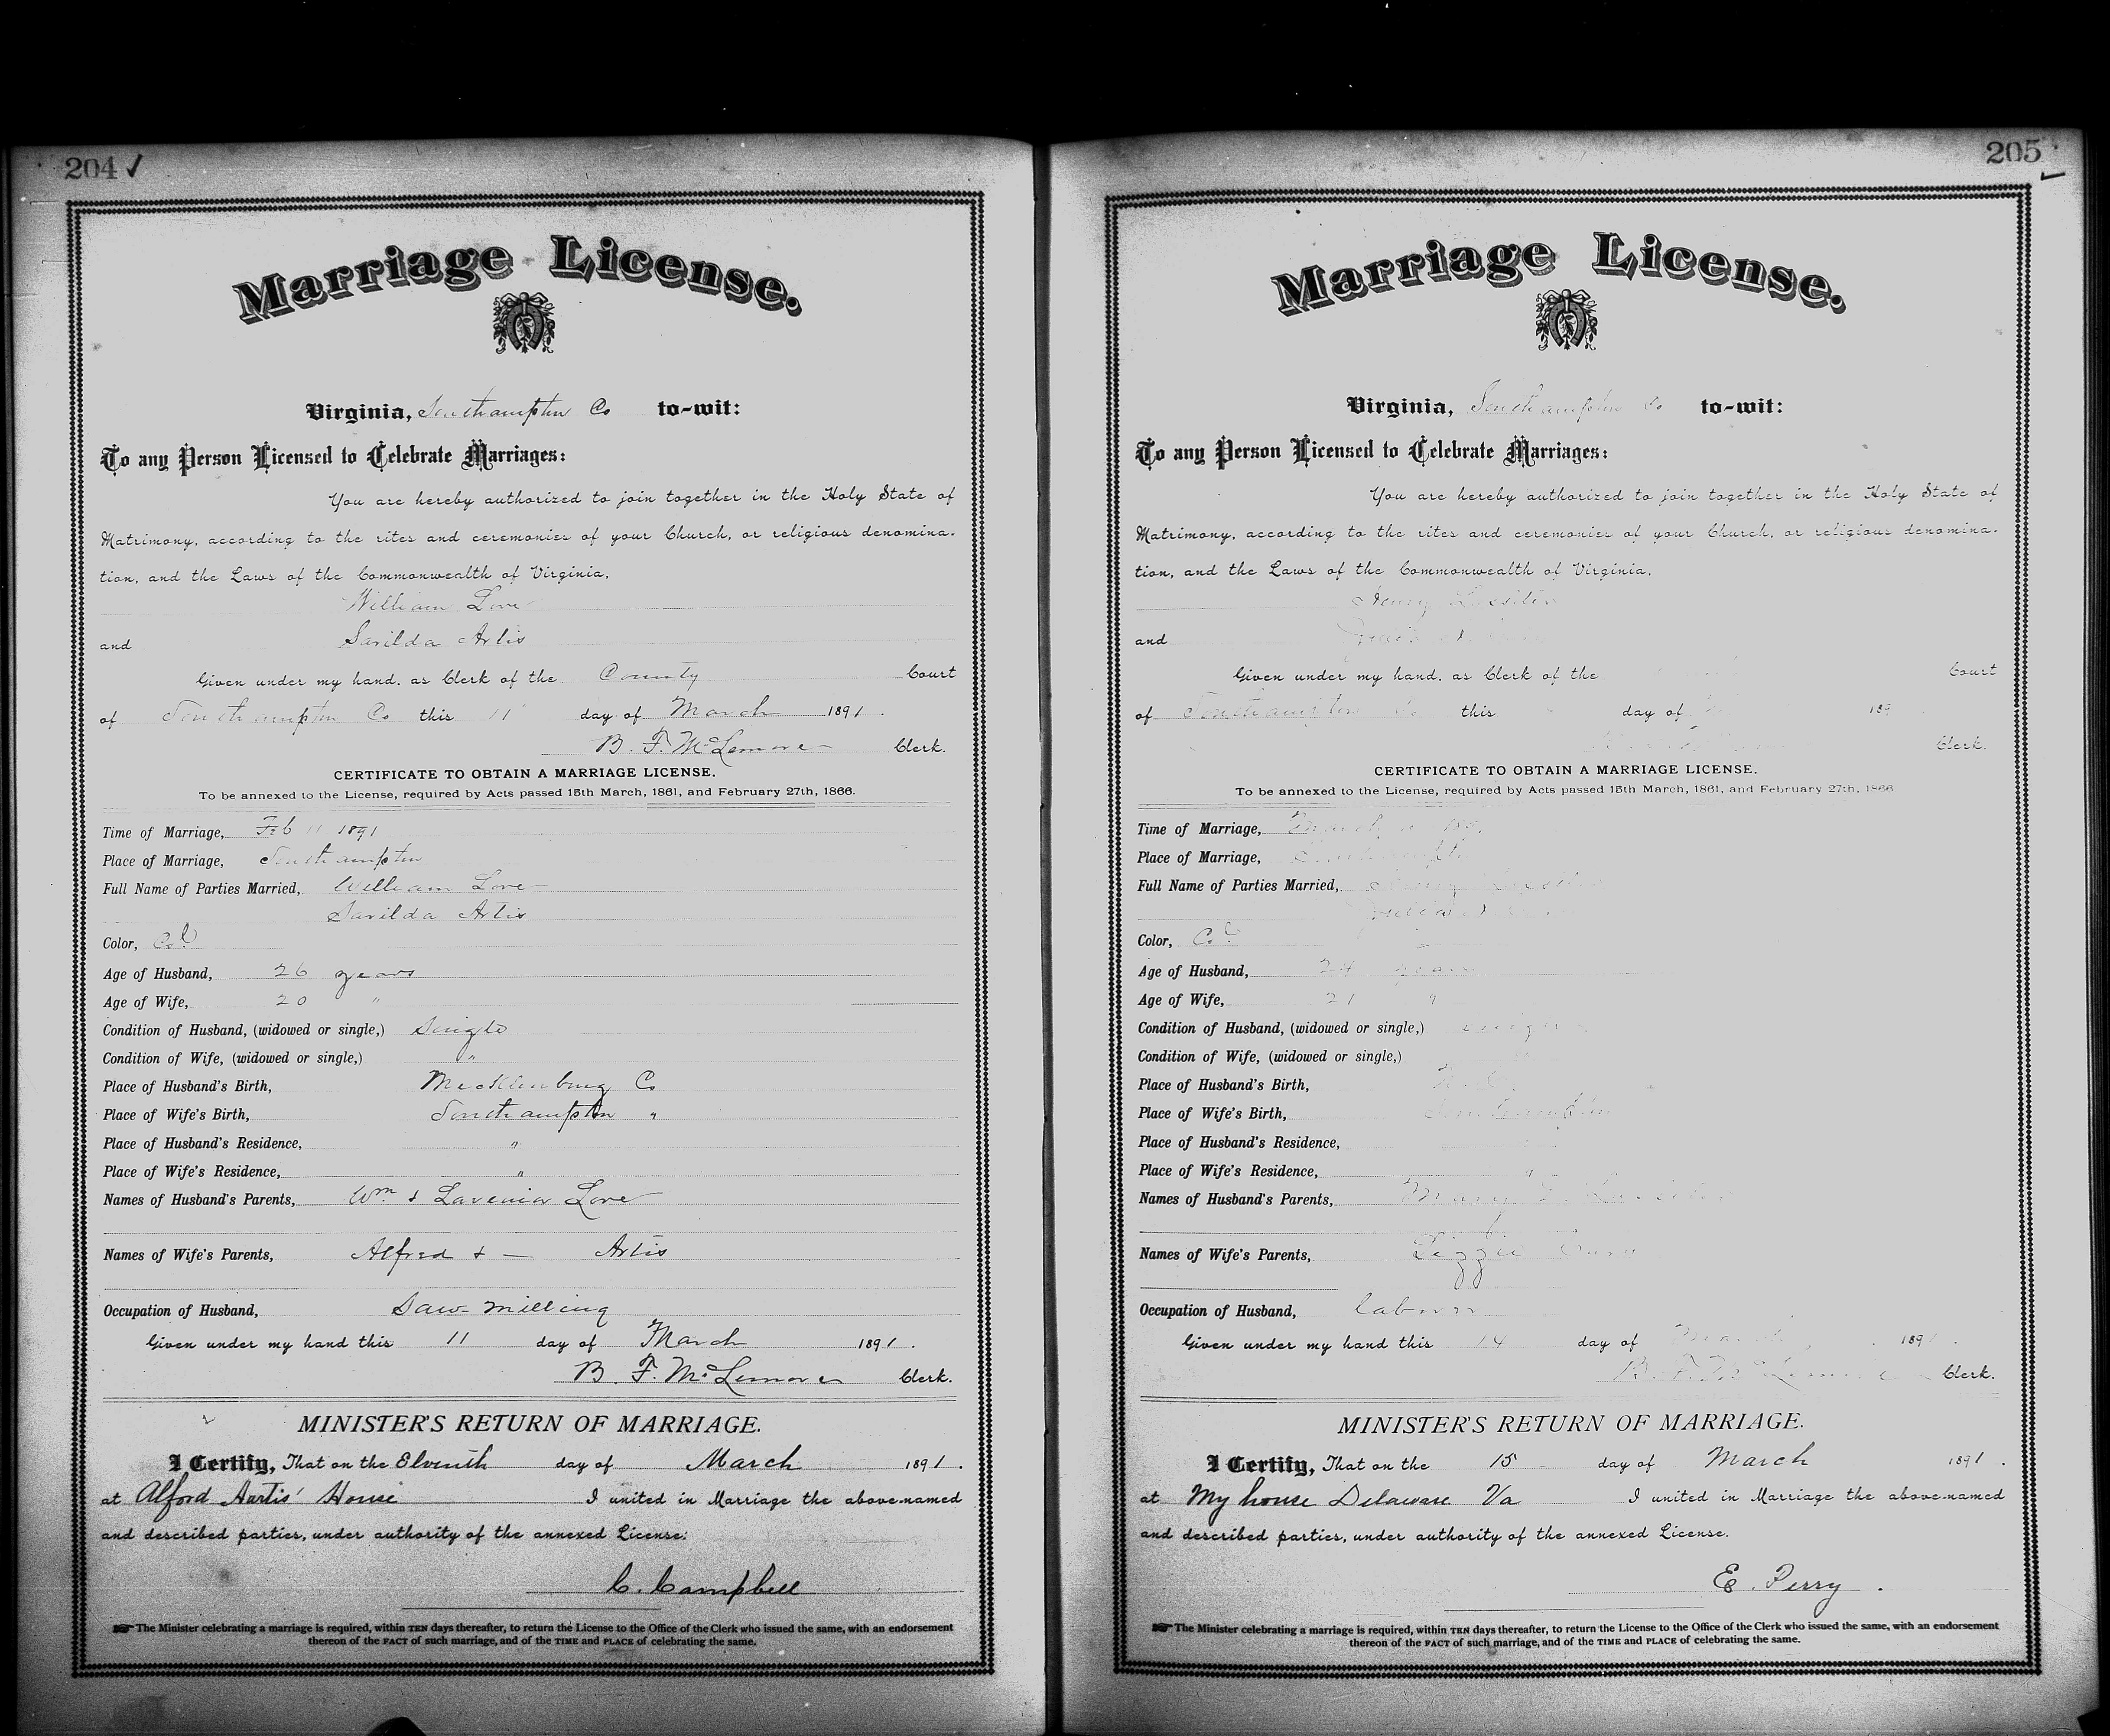 204
Marriage License.
Virginia, Southampton Co to-wit:
To any Person Licensed to Celebrate Marriages:
You are hereby authorized to join together in the Holy State of
Matrimony, according to the rites and ceremonies of your Church, or religious denomina-
tion, and the Laws of the Commonwealth of Virginia,
William Love
and Sarilda Artis
Given under my hand, as Clerk of the County Court
of Southampton Co this 11 day of March 1891.
B. F. McLemore Clerk.
CERTIFICATE TO OBTAIN A MARRIAGE LICENSE.
To be annexed to the License, required by Acts passed 15th March, 1861, and February 27th, 1866.
Time of Marriage, Feb 11 1891
Place of Marriage, Southampton
Full Name of Parties Married, William Love
Sarilda Artis
Color, Col
Age of Husband, 26 years
Age of Wife, 20 "
Condition of Husband, (widowed or single,) Single
Condition of Wife, (widowed or single,) "
Place of Husband's Birth, Mecklenburg Co
Place of Wife's Birth, Southampton "
Place of Husband's Residence, "
Place of Wife's Residence, "
Names of Husband's Parents, Wm & Lavenia Love
Names of Wife's Parents, Alfred & — Artis
Occupation of Husband, Saw-milling
Given under my hand this 11 day of March 1891.
B. F. McLemore Clerk.
MINISTER'S RETURN OF MARRIAGE.
I Certify, That on the Elventh day of March 1891.
at Alford Aartis' House I united in Marriage the above-named
and described parties, under authority of the annexed License:
C. Campbell
The Minister celebrating a marriage is required, within TEN days thereafter, to return the License to the Office of the Clerk who issued the same, with an endorsement
thereof of the FACT of such marriage, and of the TIME and PLACE of celebrating the same.
205
Marriage License.
Virginia, Southampton Co to-wit:
To any Person Licensed to Celebrate Marriages:
You are hereby authorized to join together in the Holy State of
Matrimony, according to the rites and ceremonies of your Church, or religious denomina-
tion, and the Laws of the Commonwealth of Virginia,
Henry Lassiter
and
Given under my hand, as Clerk of the Court
of Southampton Co this day of 189
Clerk.
CERTIFICATE TO OBTAIN A MARRIAGE LICENSE.
To be annexed to the License, required by Acts passed 15th March, 1861, and February 27th, 1866
Time of Marriage, March
Place of Marriage, Southampton
Full Name of Parties Married, Henry Lassiter
Color, Col
Age of Husband, 24 years
Age of Wife, 21 "
Condition of Husband, (widowed or single,) single
Condition of Wife, (widowed or single,)
Place of Husband's Birth, N. C.
Place of Wife's Birth, Southampton
Place of Husband's Residence,
Place of Wife's Residence, "
Names of Husband's Parents, Mary Lassiter
Names of Wife's Parents, Lizzie
Occupation of Husband, laborer
Given under my hand this 14 day of March 1891.
B. F. McLemore Clerk.
MINISTER'S RETURN OF MARRIAGE.
I Certify, That on the 15 day of March 1891.
at My house Delaware Va I united in Marriage the above-named
and described parties, under authority of the annexed License.
E. Perry.
The Minister celebrating a marriage is required, within TEN days thereafter, to return the License to the Office of the Clerk who issued the same, with an endorsement
thereon of the FACT of such marriage, and of the TIME and PLACE of celebrating the same.